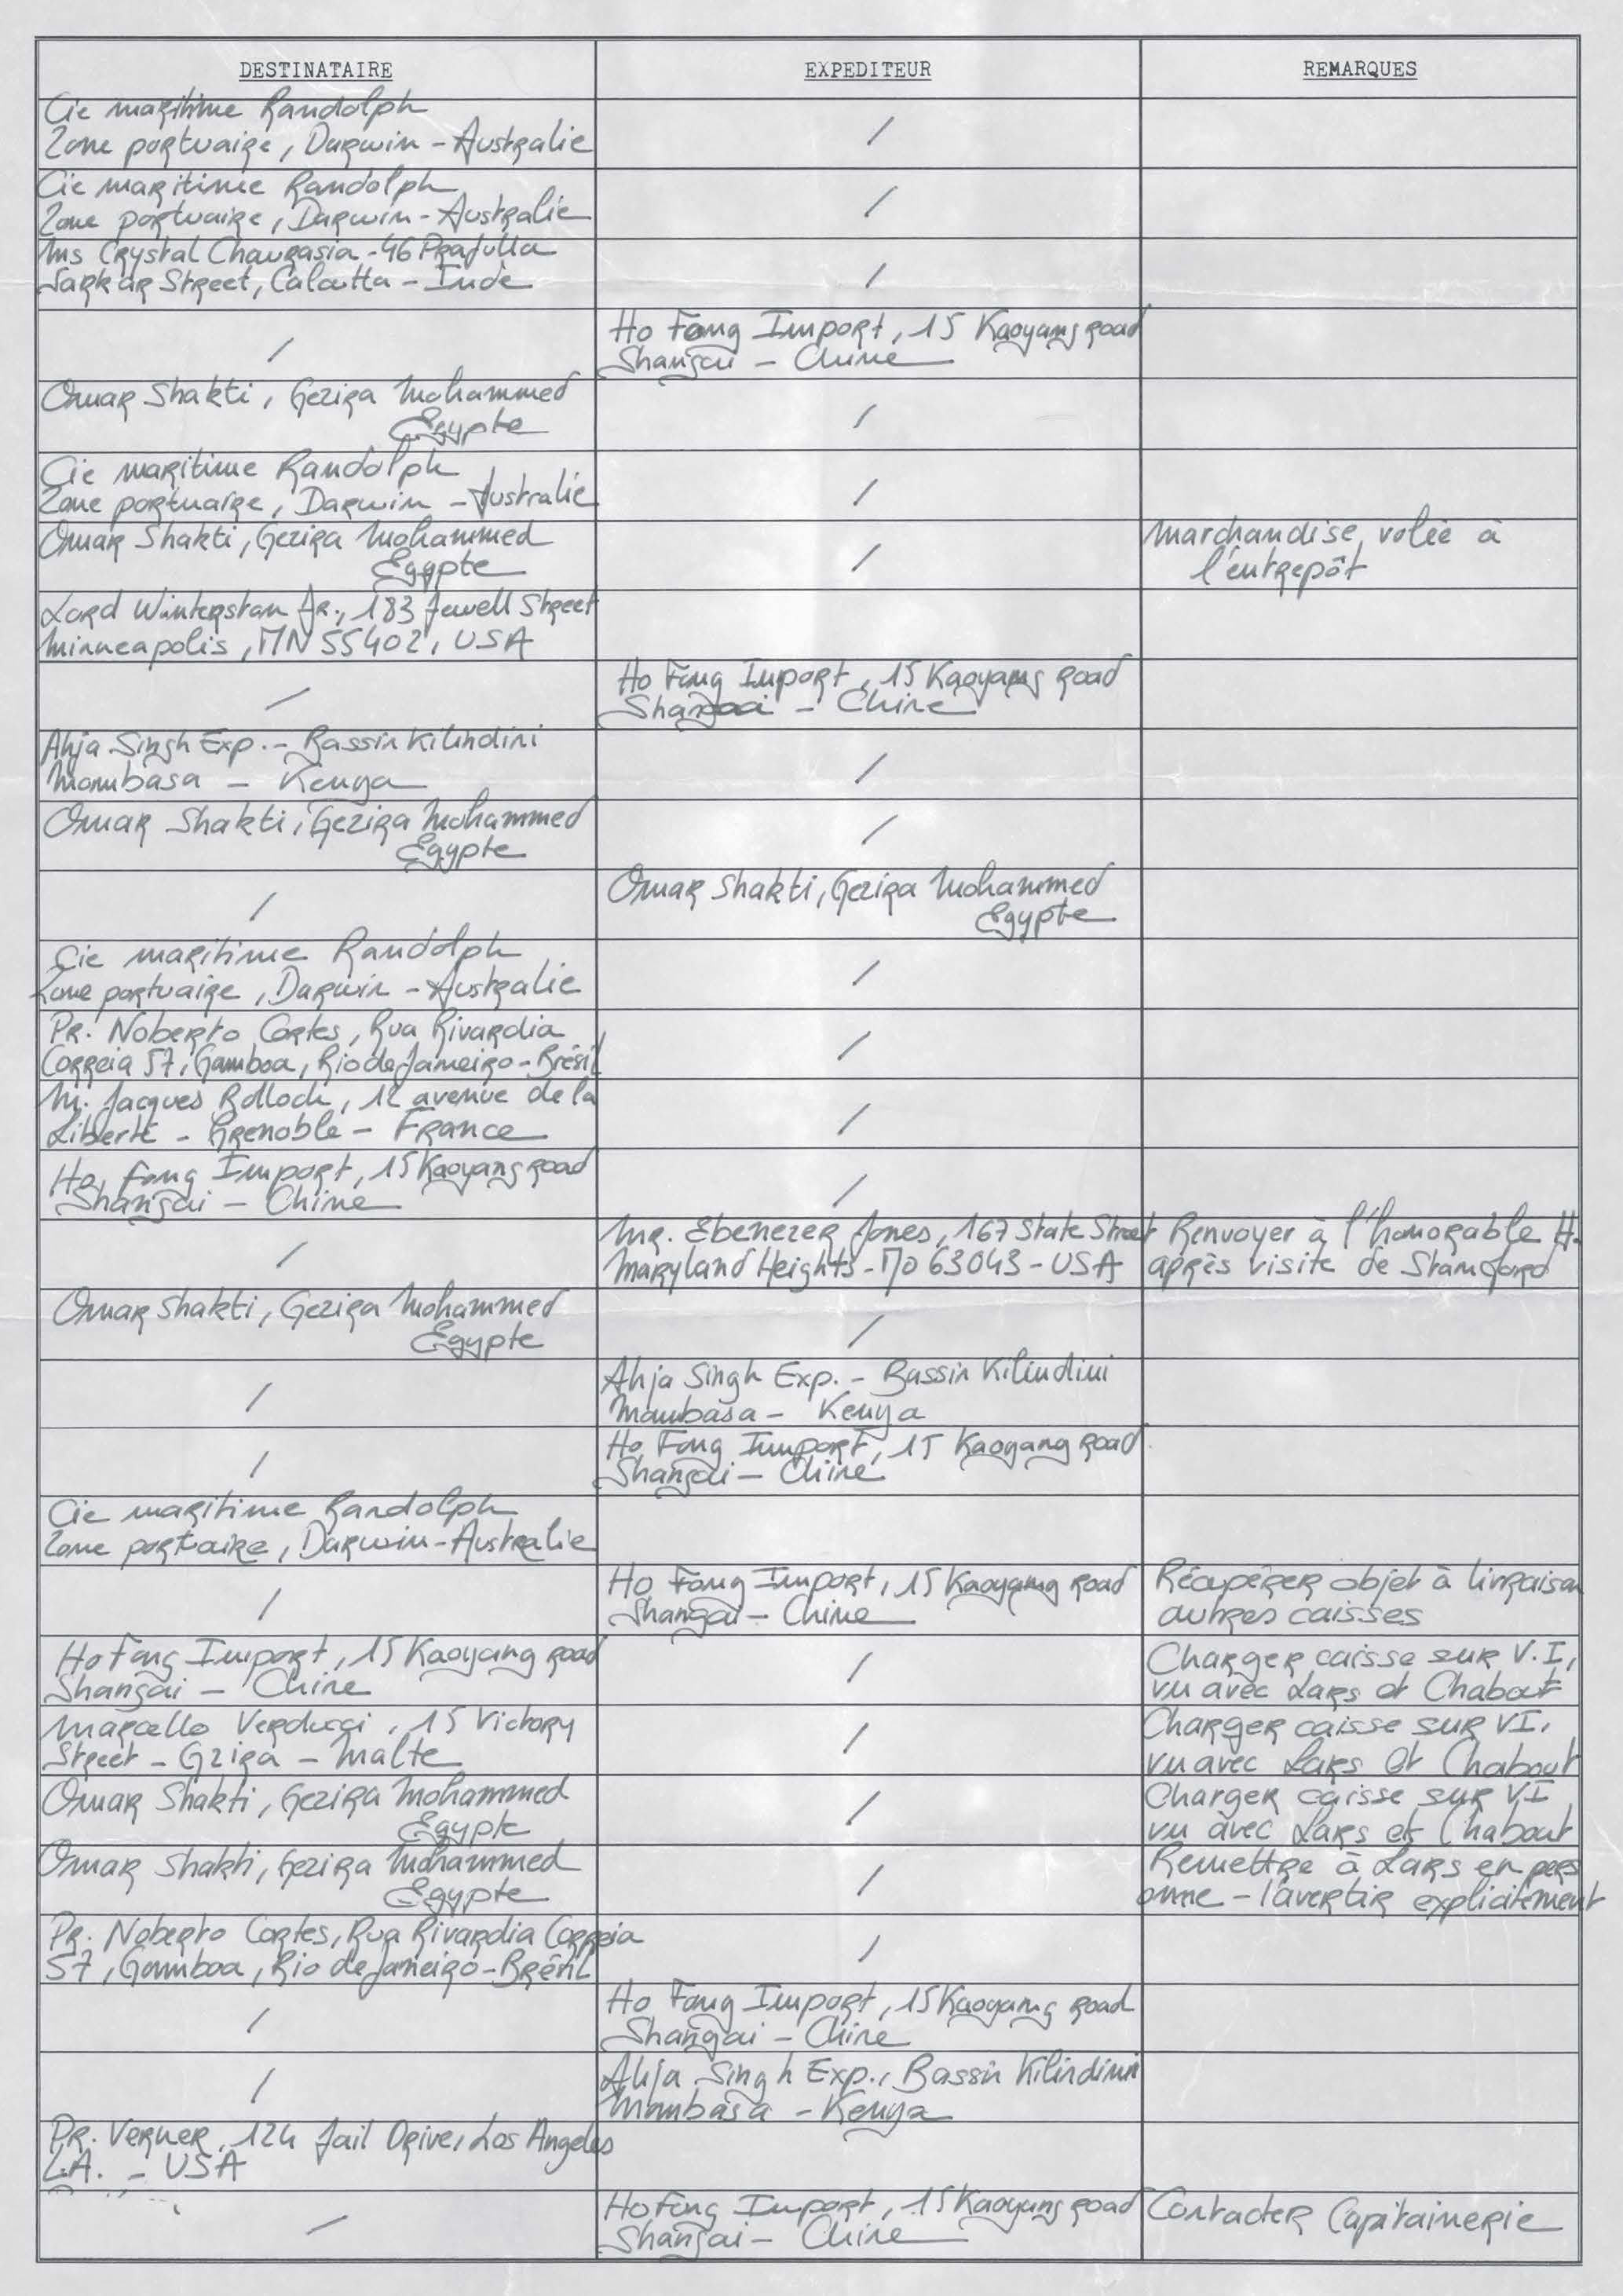 DESTINATAIRE EXPEDITEUR REMARQUES
Cie maritime Randolph
Zone portuaire, Darwin - Australie /
Cie maritime Randolph
Zone portuaire, Darwin - Australie /
Ms Crystal Chaurasia - 46 Prafulla
Sarkar Street, Calcutta - Inde /
/ Ho Fong Import, 15 Kaoyang Road
Shangai - Chine
Omar Shakti, Gezira Mohammed
Egypte /
Cie maritime Randolph
Zone portuaire, Darwin - Australie /
Omar Shakti, Gezira Mohammed
Egypte / Marchandise volée à
l'entrepôt
Lord Winterstan Jr., 183 Jewell Street
Minneapolis, MN 55402, USA
/ Ho Fong Import, 15 Kaoyang Road
Shangai - Chine
Ahja Singh Exp. - Bassin Kilindini
Mombasa - Kenya /
Omar Shakti, Gezira Mohammed
Egypte /
/ Omar Shakti, Gezira Mohammed
Egypte
Cie maritime Randolph
Zone portuaire, Darwin - Australie /
Pr. Noberto Cortes, Rua Rivardia
Correia 57, Gamboa, Rio de Janeiro - Brésil /
M. Jacques Rolloch, 12 avenue de la
Liberté - Grenoble - France /
Ho Fong Import, 15 Kaoyang Road
Shangai - Chine /
/ Mr. Ebenezer Jones, 167 State Street
Maryland Heights - Mo 63043 - USA
Renvoyer à l'honorable H.
après visite de Stanford
Omar Shakti, Gezira Mohammed
Egypte /
/ Ahja Singh Exp. - Bassin Kilindini
Mombasa - Kenya
/ Ho Fong Import, 15 Kaoyang Road
Shangai - Chine
Cie maritime Randolph
Zone portuaire, Darwin - Australie
/ Ho Fong Import, 15 Kaoyang Road
Shangai - Chine
Récupérer objet à livraison
autres caisses
Ho Fong Import, 15 Kaoyang Road
Shangai - Chine /
Charger caisse sur V.I,
vu avec Lars et Chabout
Marcello Verducci, 15 Victory
Street - Gzira - Malte /
Charger caisse sur VI,
vu avec Lars et Chabout
Omar Shakti, Gezira Mohammed
Egypte /
Charger caisse sur VI
vu avec Lars et Chabout
Omar Shakti, Gezira Mohammed
Egypte /
Remettre à Lars en pers
onne - l'avertir explicitement
Pr. Noberto Cortes, Rua Rivardia Correia
57, Gamboa, Rio de Janeiro - Brésil /
/ Ho Fong Import, 15 Kaoyang Road
Shangai - Chine
/ Ahja Singh Exp., Bassin Kilindini
Mombasa - Kenya
Pr. Verner, 124 Jail Drive, Los Angeles
L.A. - USA
/ Ho Fong Import, 15 Kaoyang Road
Shangai - Chine
Contacter Capitainerie